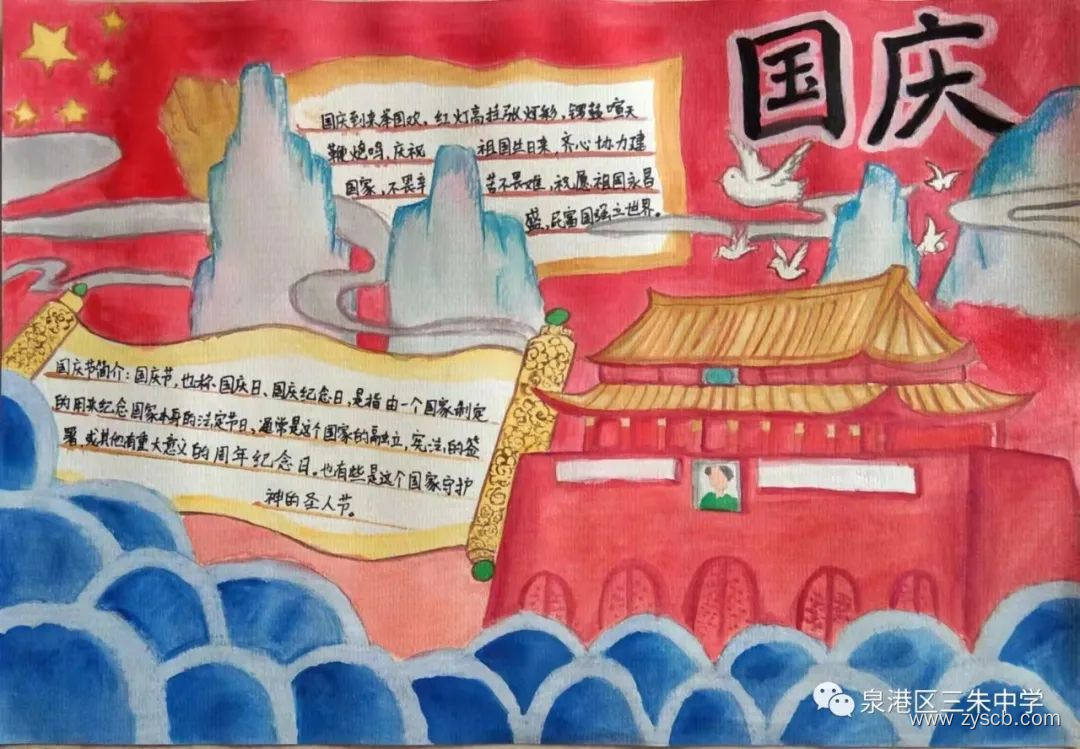 国庆
国庆到来举国欢，红灯高挂张灯彩，锣鼓喧天
鞭炮鸣，庆祝 祖国生日来，齐心协力建
国家，不畏辛 苦不畏难，祝愿祖国永昌
盛，民富国强立世界。
国庆节简介：国庆节，也称国庆日、国庆纪念日，是指由一个国家制定
的用来纪念国家本身的法定节日、通常是这个国家的独立，宪法的签
署，或其他有重大意义的周年纪念日。也有些是这个国家守护
神的圣人节。
泉港区三朱中学
www.zyscb.com